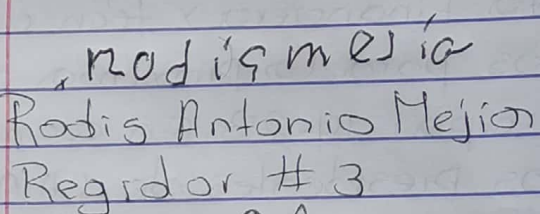 rodis mejia
Rodis Antonio Mejia
Regidor # 3